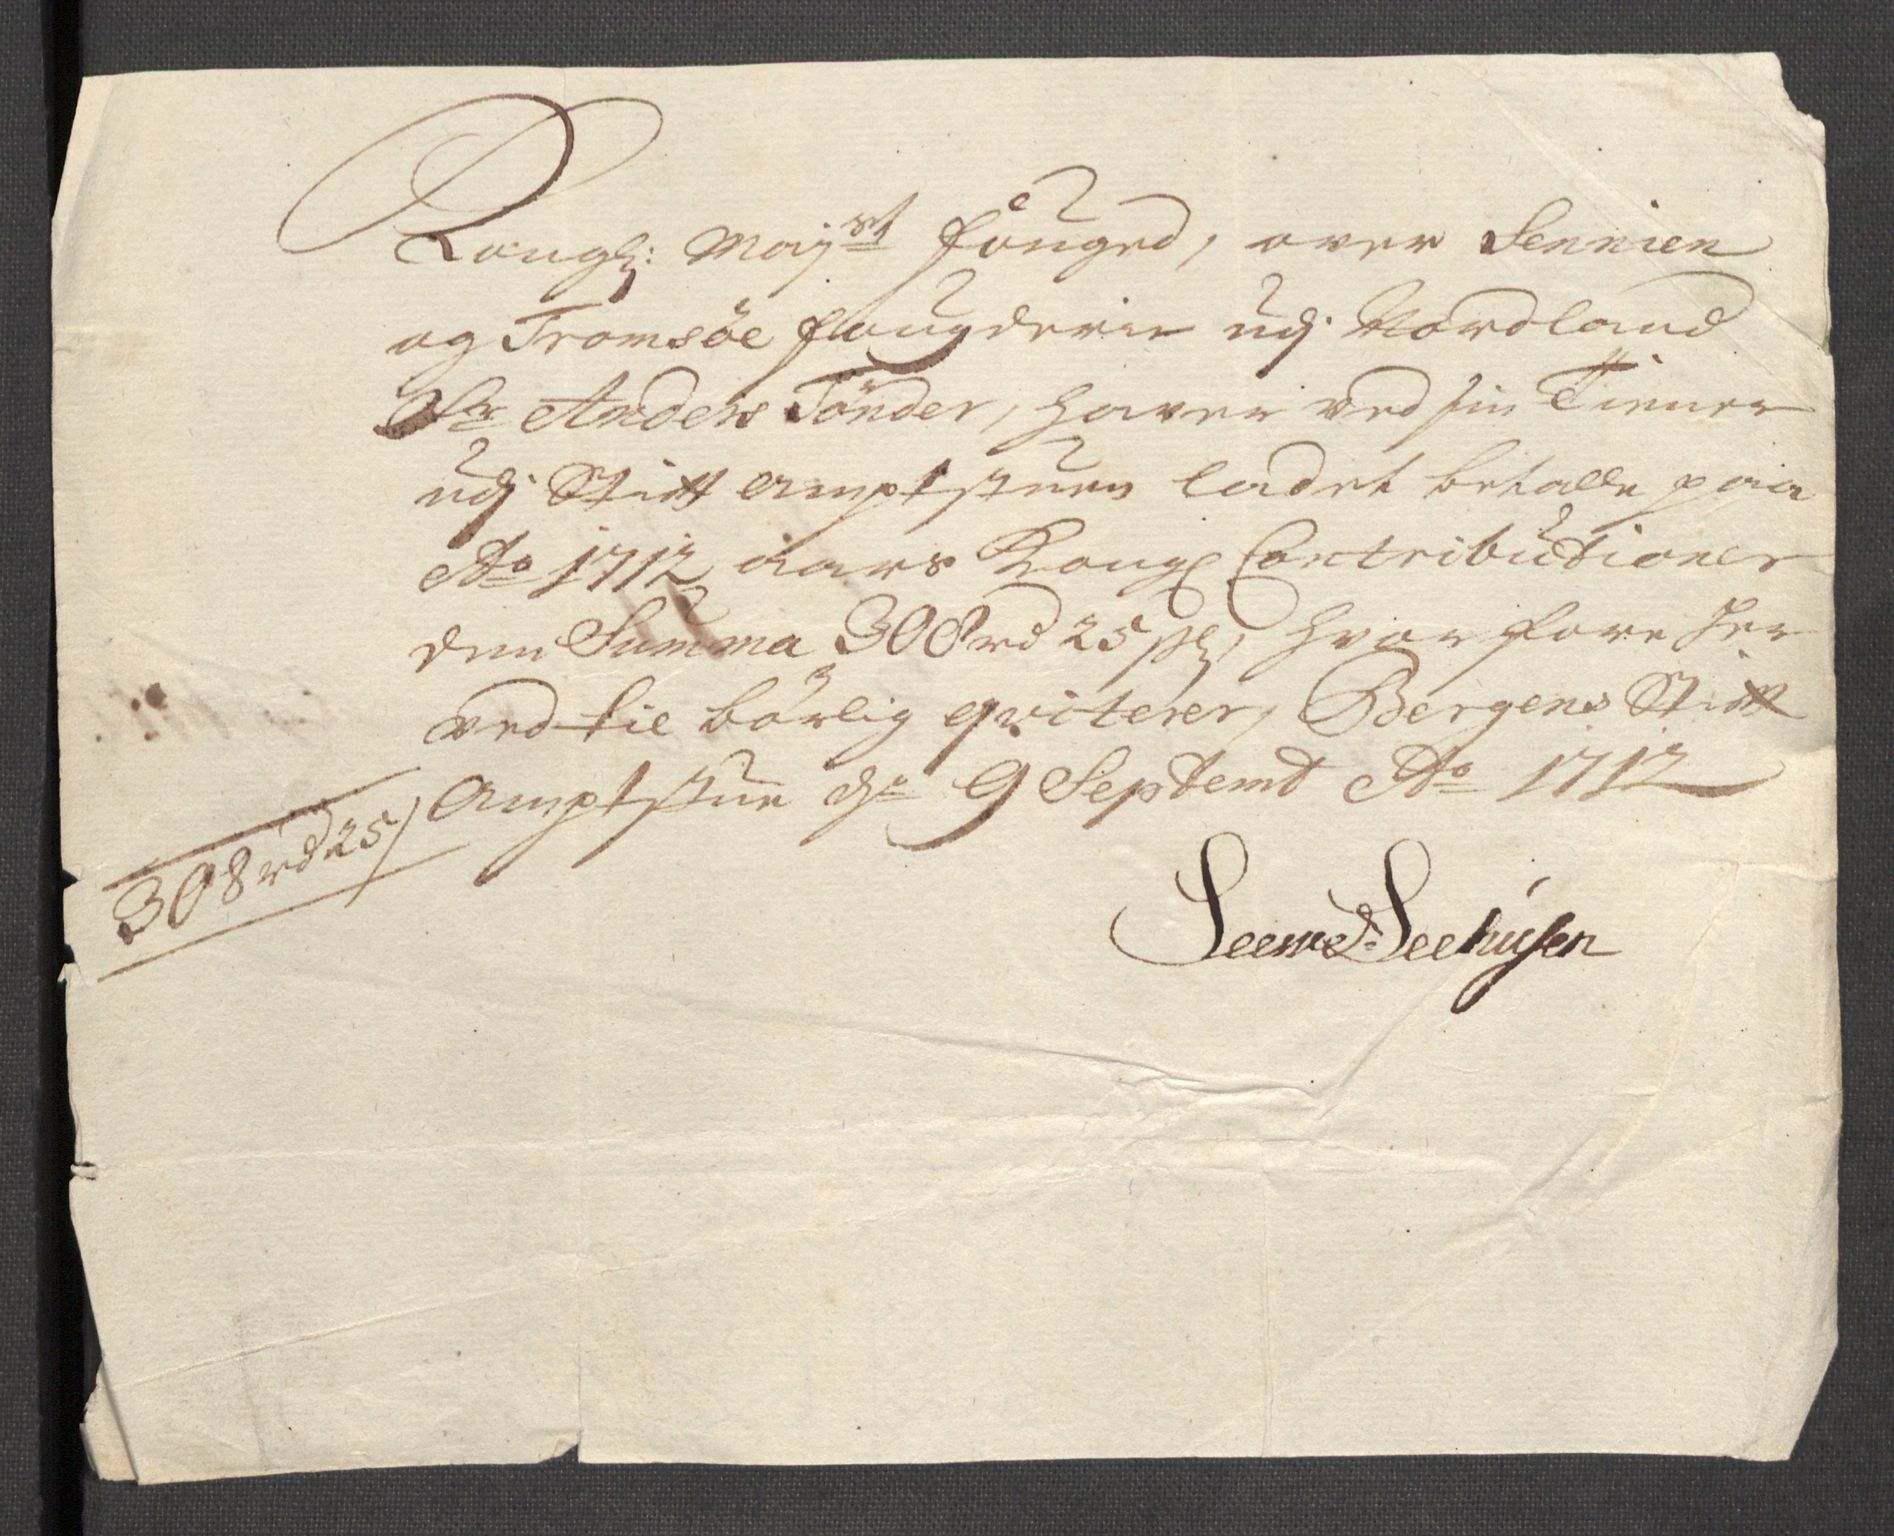 Kongl: Mayst fouged, over Sennien
og Tromsöe fougderie udj Nordland
Sr Anders Tönder, haver ved sin Tiener
udj Stift Amptstuen ladet betalle paa
Ao 1712 aars Kongl Contributioner
den Summa 308 rd 25 ß, hvorfore her
ved til börlig qviterer, Bergens Stift
Amptstue dn 9 Septemb Ao 1712
308 rd 25/
Seehusen